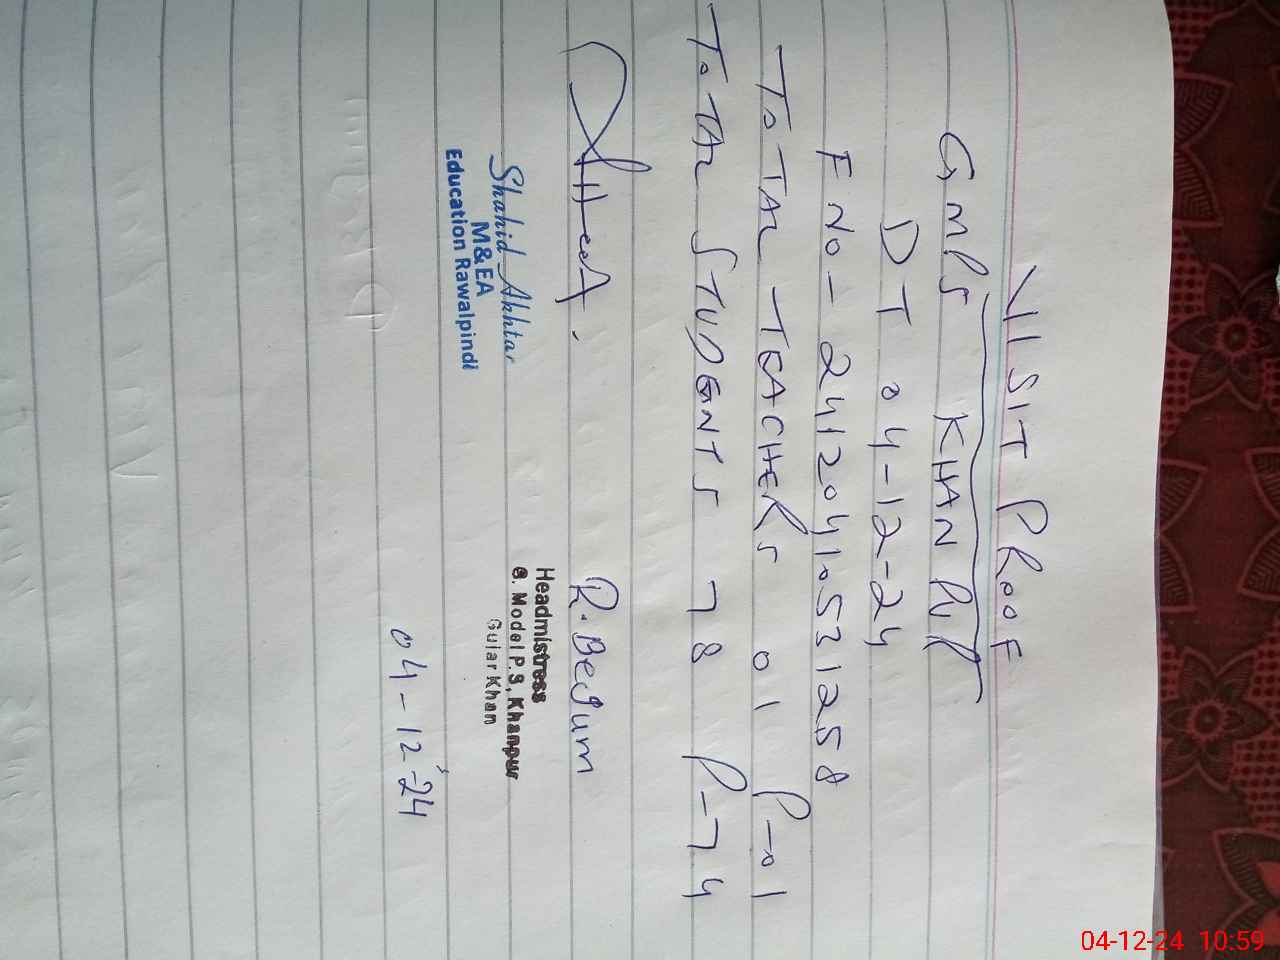 VISIT PROOF
GMPS KHAN PUR
DT 04-12-24
F NO - 24120410531258
TOTAL TEACHERS 01 P-01
TOTAL STUDENTS 78 P-74
R. Begum
Shahid Akhtar
M&EA
Education Rawalpindi
Headmistress
G. Model P.S, Khanpur
Gujar Khan
04-12-24
04-12-24 10:59